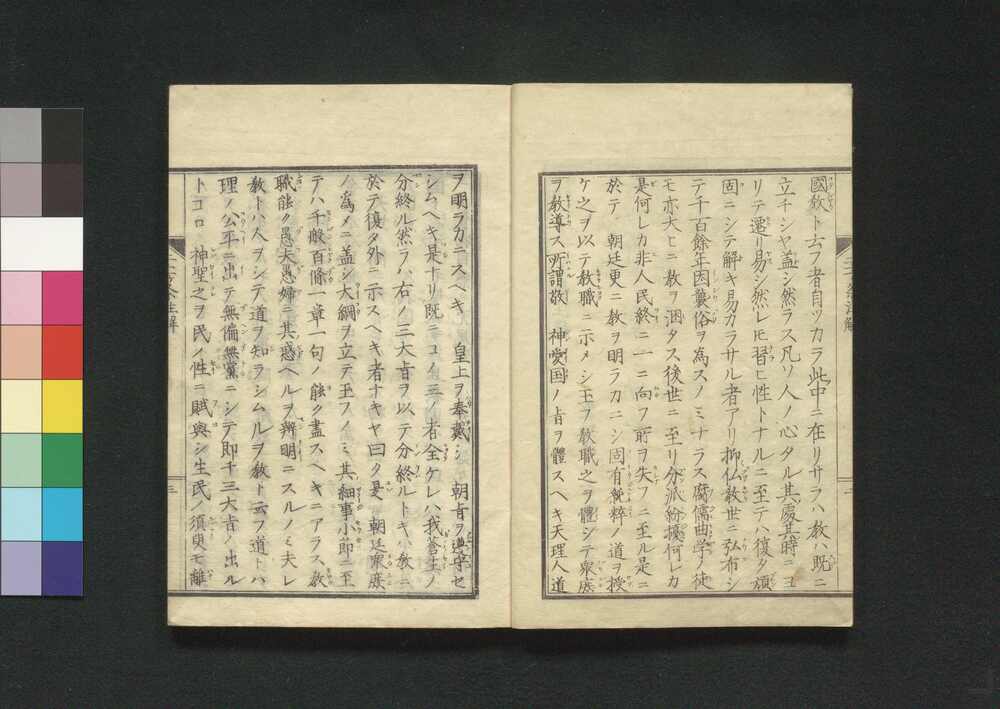 國教ト云フ者自ツカラ此中ニ在リサラハ教ハ既ニ
立チシヤ盖シ然ラス凡ソ人ノ心タル其處其時ニヨ
リテ遷リ易シ然レ𪜈習ヒ性トナルニ至テハ復タ頑
固ニシテ解キ易カラサル者アリ抑仏教世ニ弘布シ
テ千百餘年因襲俗ヲ為スノミナラス腐儒曲学ノ徒
モ亦大ヒニ教ヲ溷タス後世ニ至リ分派紛擾何レカ
是何レカ非人民終ニ一ニ向フ所ヲ失フニ至ル是ニ
於テ 朝廷更ニ教ヲ明ラカニシ固有純粹ノ道ヲ授
ケ之ヲ以テ教職ニ示メシ玉フ教職之ヲ體シテ衆庶
ヲ教導ス所謂敬 神愛国ノ旨ヲ體スヘキ天理人道
ヲ明ラカニスヘキ 皇上ヲ奉戴シ 朝旨ヲ遵守セ
シムヘキ是ナリ既ニコノ三ノ者全ケレハ我蒼生ノ
分終ル然ラハ右ノ三大旨ヲ以テ分終ルトキハ教ニ
於テ復タ外ニ示スヘキ者ナキヤ曰ク是 朝廷衆庶
ノ為メニ盖シ大綱ヲ立テ玉フノミ其細事小節ニ至
テハ千般百條一章一句ノ能ク盡スヘキニアラス教
職能ク愚夫愚婦ニ其惑ヘルヲ辨明ニスルノミ夫レ
教トハ人ヲシテ道ヲ知ラシムルヲ教ト云フ道トハ
理ノ公平ニ出テ無偏無黨ニシテ即チ三大旨ノ出ル
トコロ 神聖之ヲ民ノ性ニ賦與シ生民ノ須臾モ離